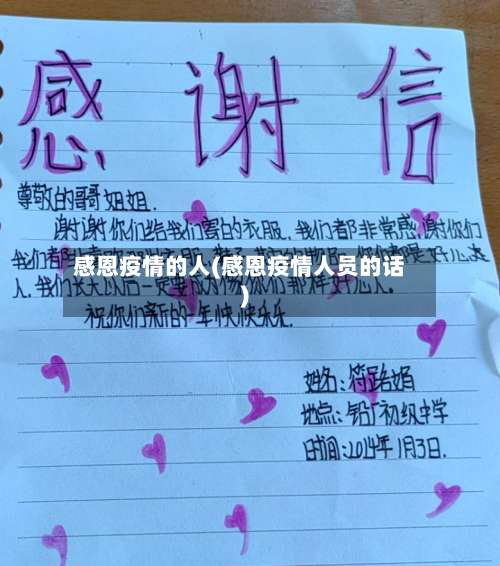 感谢信
尊敬的哥哥姐姐.
谢谢你们给我们寄的衣服.我们都非常感谢你们
我们都
感恩疫情的人(感恩疫情人员的话
)
人.我们长大以后一定要成为像你们那样好心人.
祝你们新的一年快快乐乐.
姓名:符路娟
地点:铅厂初级中学
时间:2014年1月3日.